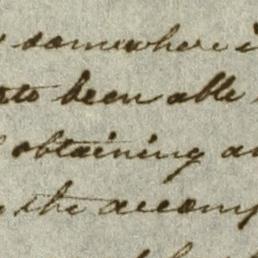 somewhere
been able
obtaining
the accomp